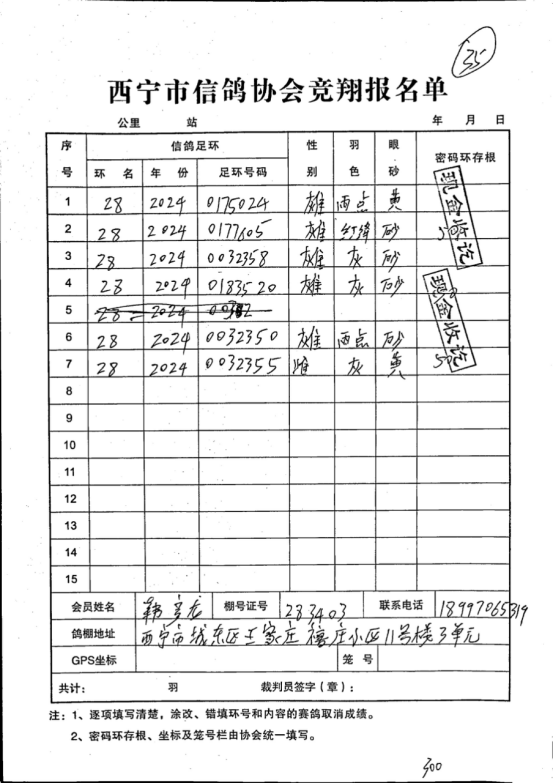 35
西宁市信鸽协会竞翔报名单
公里 站 年 月 日
序号 信鸽足环 性别 羽色 眼砂 密码环存根
环名 年份 足环号码
1 28 2024 0175024 雄 雨点 黄
2 28 2024 0177605 雄 红绛 砂
3 28 2024 0032358 雄 灰 砂
4 28 2024 0183520 雄 灰 砂
现金收讫
5 28 2024
6 28 2024 0032350 雄 雨点 砂
7 28 2024 0032355 雌 灰 黄
现金收讫
8
9
10
11
12
13
14
15
会员姓名 韩 龙 棚号证号 283403 联系电话 18997065319
鸽棚地址 西宁市城东区王家庄 庄小区11号楼3单元
GPS坐标 笼号
共计: 羽 裁判员签字(章):
注:1、逐项填写清楚,涂改、错填环号和内容的赛鸽取消成绩。
2、密码环存根、坐标及笼号栏由协会统一填写。
300